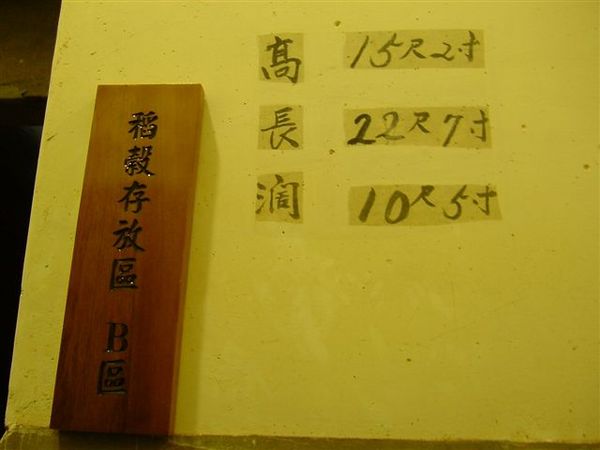 稻穀存放區 B區
髙 15尺2寸
長 22尺7寸
濶 10尺5寸